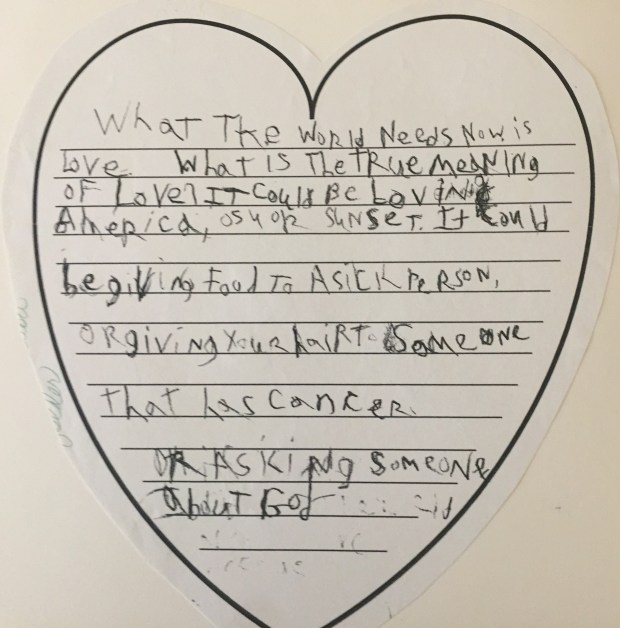 What The World Needs Now is
Love. What IS The TRue MeaNing
OF Love? IT Could Be Loving
America, or Sunset. It Could
be giving Food To A sick PeRSON,
ORgiving Your haiRT Someone
that has cancer.
OR ASking SomeoNe
About God